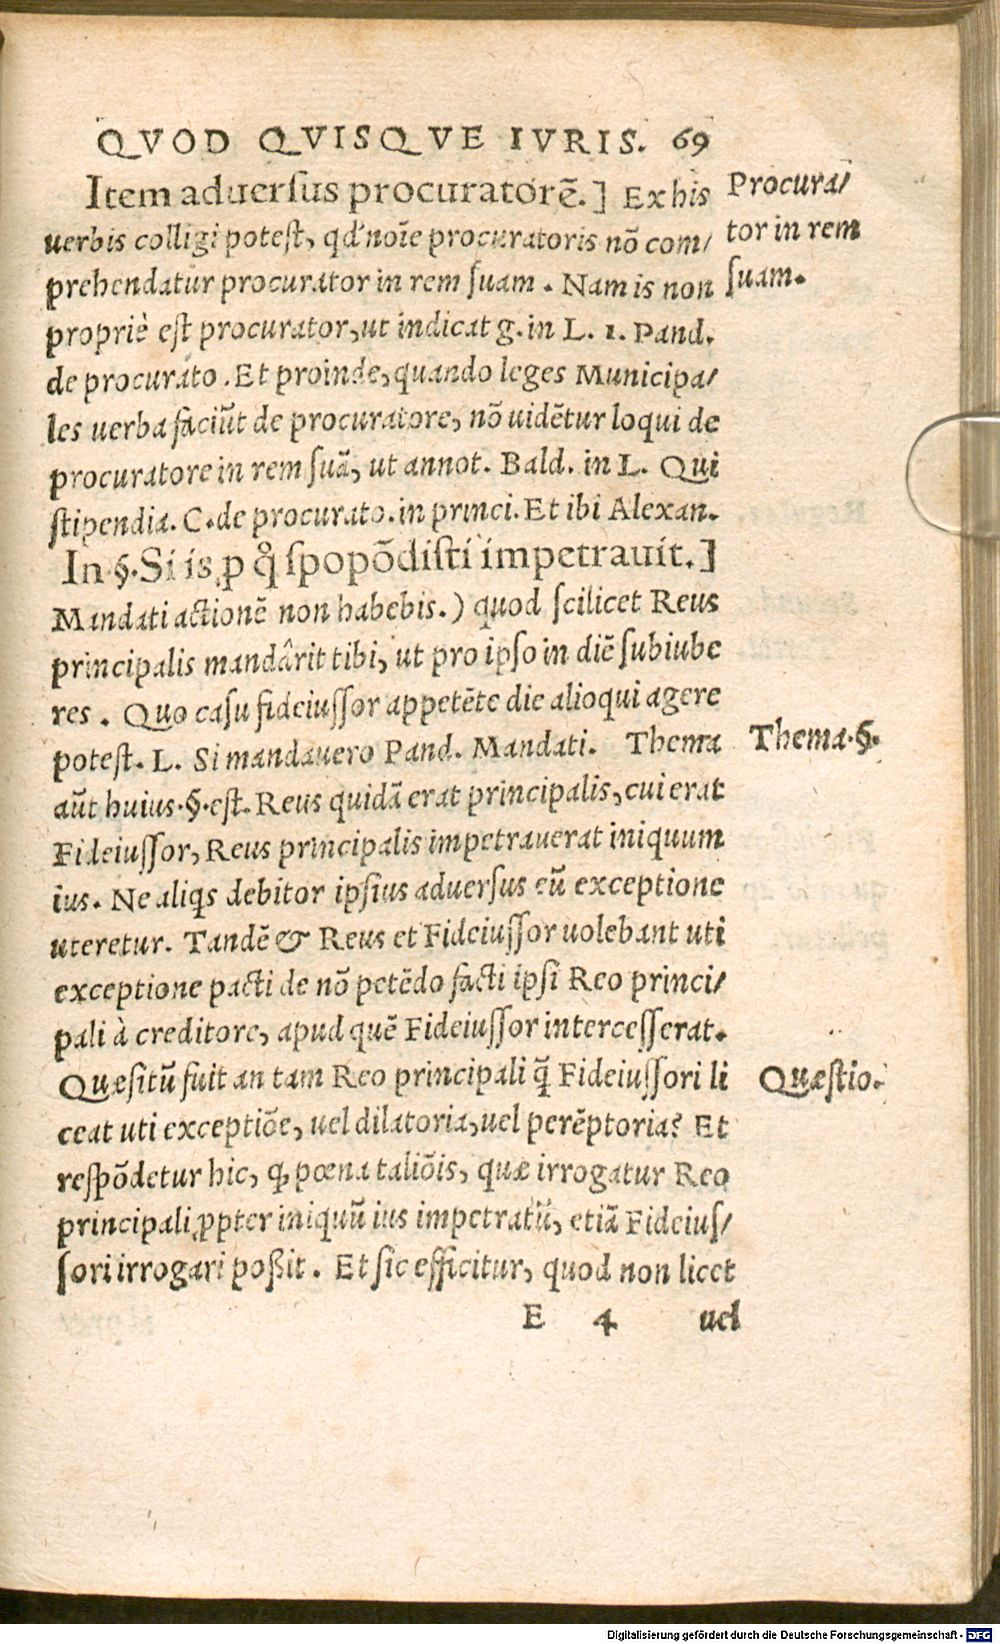 QVOD QVISQVE IVRIS. 69
Item aduersus procuratorē.] Ex his
uerbis colligi potest, qd' noīe procuratoris nō com/
prehendatur procurator in rem suam. Nam is non
propriè est procurator, ut indicat g. in L. 1. Pand.
de procurato. Et proinde, quando leges Municipa/
les uerba faciūt de procuratore, nō uidētur loqui de
procuratore in rem suā, ut annot. Bald. in L. Qui
stipendia. C. de procurato. in princi. Et ibi Alexan.
Procura/
tor in rem
suam.
In §. Si is ꝓ q̊ spopōdisti impetrauit.]
Mandati actionē non habebis.) quod scilicet Reus
principalis mandârit tibi, ut pro ipso in diē subiube
res. Quo casu fideiussor appetēte die alioqui agere
potest. L. Si mandauero Pand. Mandati. Thema
aūt huius §. est. Reus quidā erat principalis, cui erat
Fideiussor, Reus principalis impetrauerat iniquum
ius. Ne aliqs debitor ipsius aduersus eū exceptione
uteretur. Tandē & Reus et Fideiussor uolebant uti
exceptione pacti de nō petēdo facti ipsi Reo princi/
pali à creditore, apud quē Fideiussor intercesserat.
Thema §.
Quæsitū fuit an tam Reo principali q̄ Fideiussori li
ceat uti exceptiōe, uel dilatoria, uel perēptoria? Et
respōdetur hic, ꝙ pœna taliōis, quæ irrogatur Reo
principali ꝓpter iniquū ius impetratū, etiā Fideius/
sori irrogari poßit. Et sic efficitur, quod non licet
Quæstio.
E 4 uel
Digitalisierung gefördert durch die Deutsche Forschungsgemeinschaft - DFG